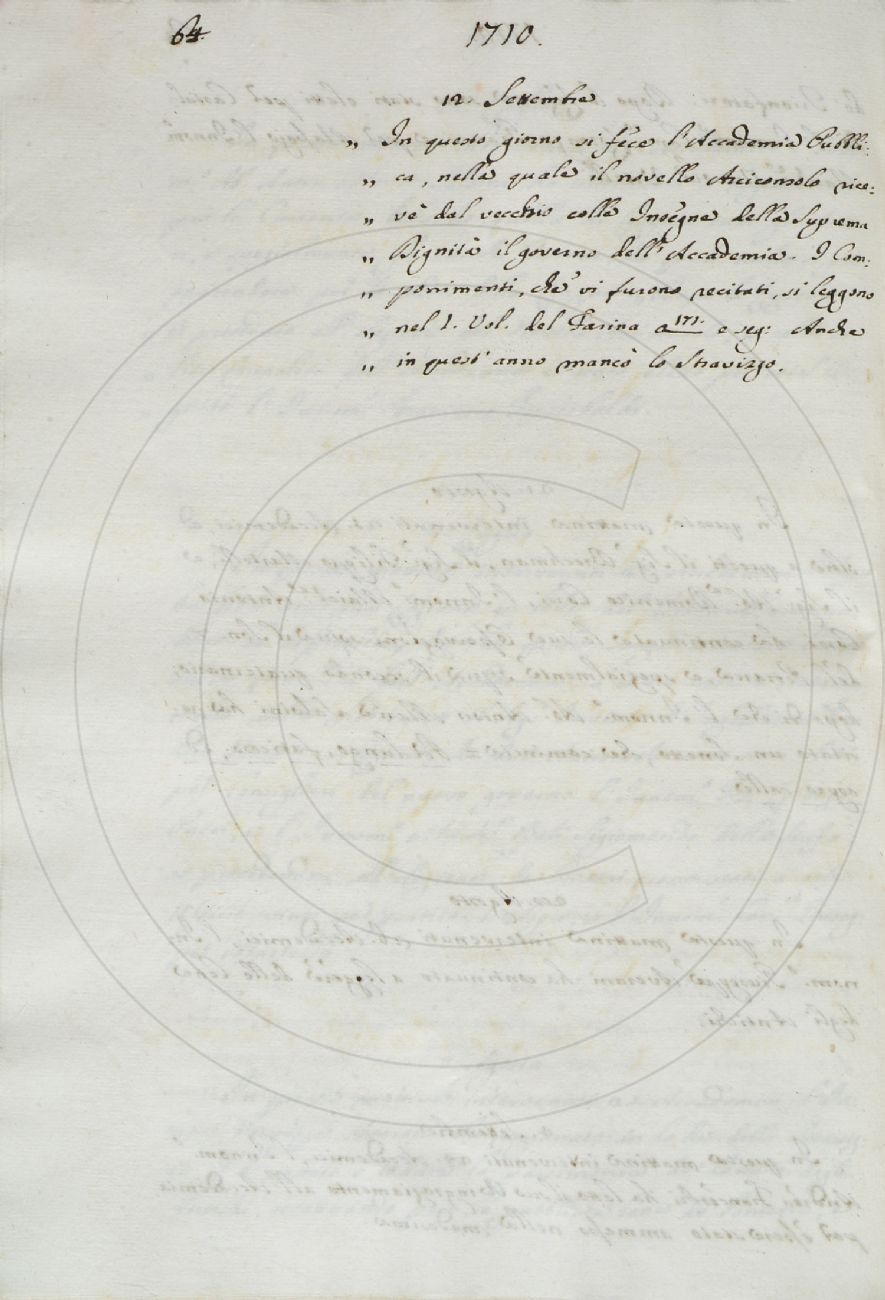 64
1710.
12. Settembre
„ In questo giorno si fece l'Accademia Pubbli:
„ ca, nella quale il novello Arciconsolo rice:
„ vè dal vecchio colle Insegne della Suprema
„ Dignità il governo dell'Accademia. I Com:
„ ponimenti, che vi furono recitati, si leggono
„ nel 1. Vol. del Farina a 171. e seg: Anche
„ in quest'anno mancò lo Stravizzo.